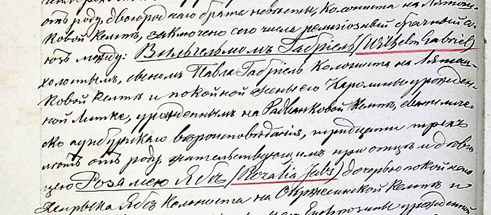 отъ роду двоюроднаго брата невесты, колониста на
ковой Кемпѣ, заключено сего числа религіозный брачный со-
юзъ между: Вильгельмомъ Габріель (Wilhelm Gabriel)
холостымъ, сыномъ Павла Габріель колониста на
ковой Кемпѣ и покойной жены его Каролины урожден-
ной Литке, урожденнымъ на Радванковой Кемпѣ, евангеличе-
ско аугсбургскаго вѣроисповѣданія, тридцати трехъ
лѣтъ отъ роду, жительствующимъ при отцѣ и дѣви-
цею Розалією Ябсъ (Rozalia Jabs) дочерью покойнаго
Ябсъ Колониста на Кемпѣ и
урожденной